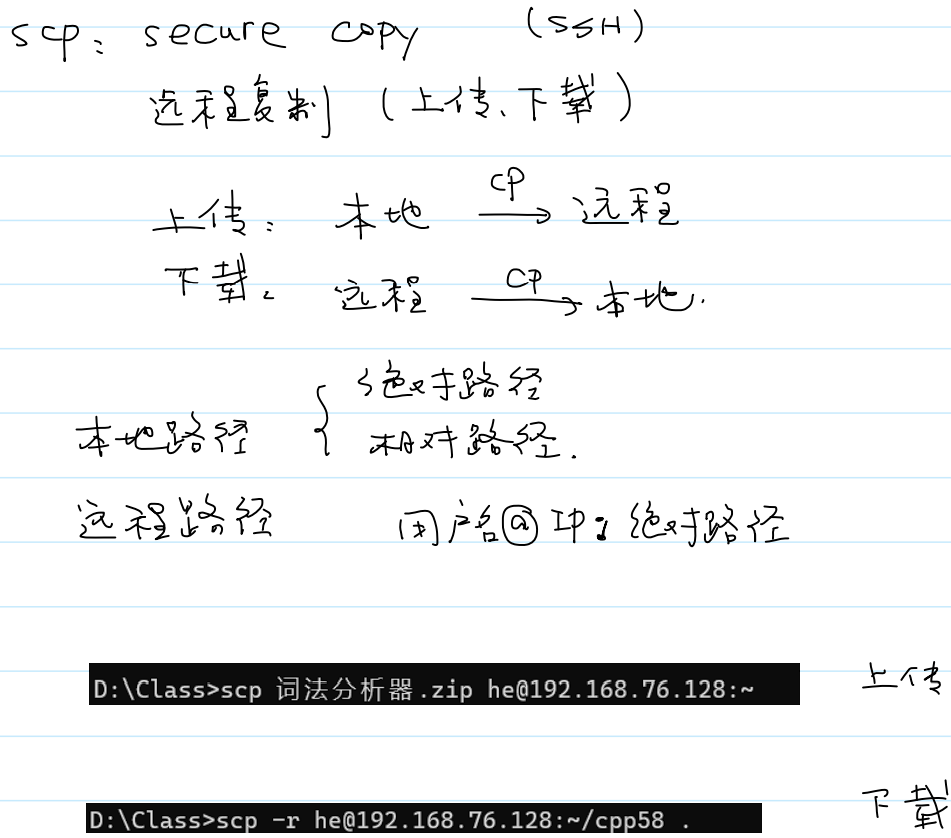 scp: secure copy (SSH)
远程复制 (上传、下载)
上传: 本地 cp → 远程
下载: 远程 cp → 本地.
本地路径 { 绝对路径
相对路径.
远程路径 用户名@IP: 绝对路径
D:\Class>scp 词法分析器.zip he@192.168.76.128:~ 上传
下载
D:\Class>scp -r he@192.168.76.128:~/cpp58 .